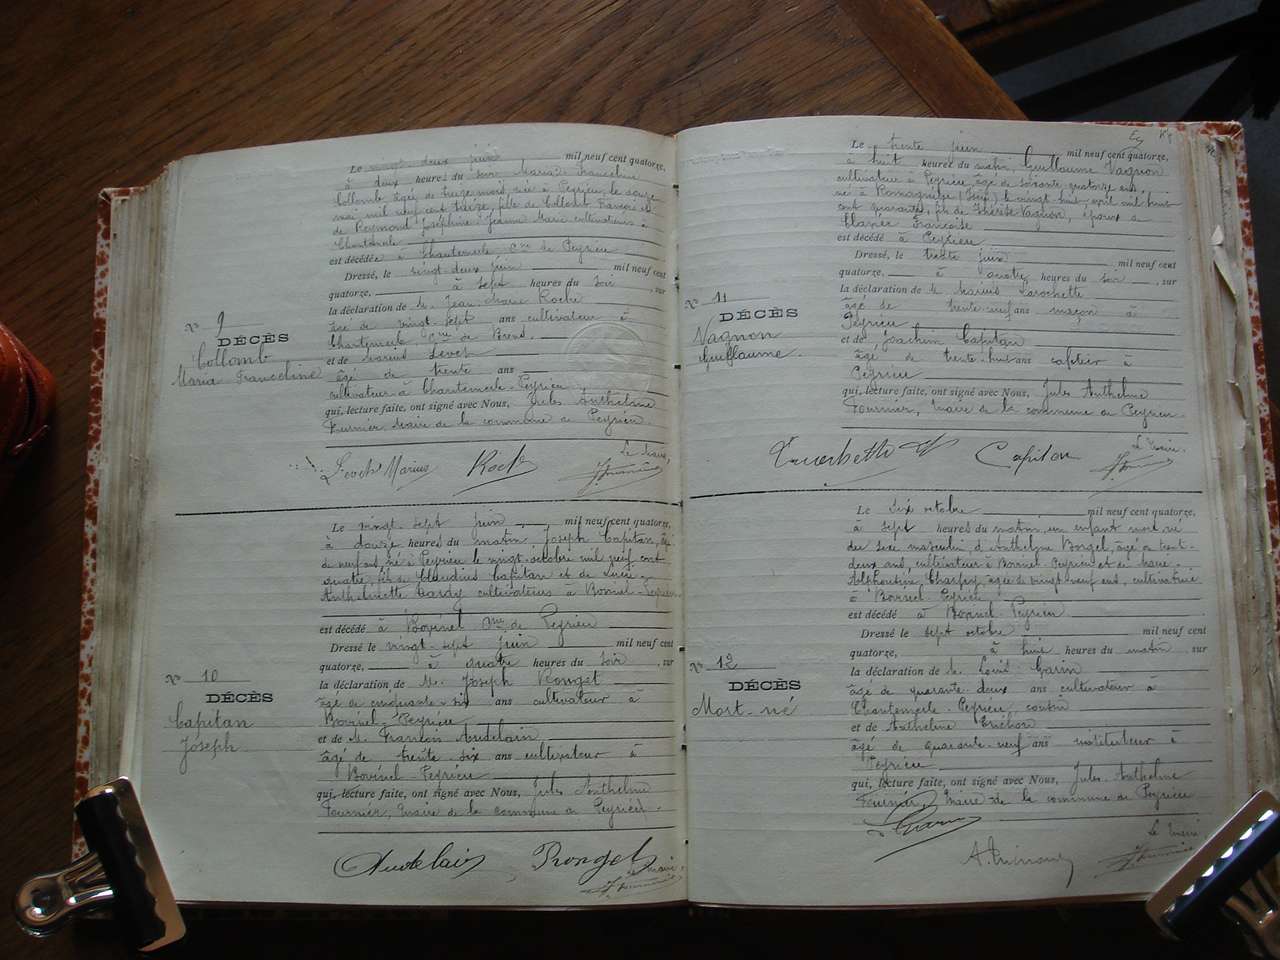 Le vingt-deux juin mil neuf cent quatorze,
à deux heures du soir Maria Franceline
Collomb âgée de treize mois, née à Peyrieu, le
mai mil neuf cent treize, fille de Collomb François et
de Peymond Joséphine Jeanne Marie cultivateurs à
Chantemerle
est décédée à Chantemerle Cne de Peyrieu
Dressé, le vingt-deux juin mil neuf cent
quatorze, à sept heures du soir, sur
la déclaration de M. Jean Marie Roche
âgé de vingt-sept ans cultivateur à
Chantemerle, Cne de Brens,
et de Marius Levet
âgé de trente ans
cultivateur à Chantemerle-Peyrieu
qui, lecture faite, ont signé avec Nous, Jules Anthelme
Fournier Maire de la commune de Peyrieu.
No 9
DÉCÈS
Collomb
Maria Franceline
Levet Marius Roche
Le Maire,
J. Fournier
Le vingt-sept juin mil neuf cent quatorze,
à douze heures du matin Joseph Capitan, âgé
de neuf ans, né à Peyrieu le vingt octobre mil neuf cent
quatre, fils de Claudius Capitan et de Lucie
Anthelmette Cardy cultivateurs à Bovinel-Peyrieu
est décédé à Bovinel Cne de Peyrieu
Dressé le vingt-sept juin mil neuf cent
quatorze, à quatre heures du soir, sur
la déclaration de M. Joseph Rouget
âgé de cinquante-six ans cultivateur à
Bovinel-Peyrieu
et de M. François Audelain
âgé de trente-six ans cultivateur à
Bovinel-Peyrieu
qui, lecture faite, ont signé avec Nous, Jules Anthelme
Fournier, Maire de la commune de Peyrieu.
No 10
DÉCÈS
Capitan
Joseph
Audelain Rouget
Le Maire
J. Fournier
Le trente juin mil neuf cent quatorze,
à huit heures du matin, Guillaume Vagnon
cultivateur à Peyrieu âgé de soixante quatorze ans,
né à Romagnieu (Isère) le vingt huit avril mil huit
cent quarante, fils de Vagnon, époux de
Françoise
est décédé à Peyrieu
Dressé, le trente juin mil neuf cent
quatorze, à quatre heures du soir, sur
la déclaration de M. Marius Larochette
âgé de trente-neuf ans maçon à
Peyrieu
et de Joachim Capitan
âgé de trente-huit ans cafetier à
Peyrieu
qui, lecture faite, ont signé avec Nous, Jules Anthelme
Fournier, Maire de la commune de Peyrieu.
No 11
DÉCÈS
Vagnon
Guillaume
Capitan
Le Maire,
J. Fournier
Le six octobre mil neuf cent quatorze,
à sept heures du matin, un enfant mort-né
du sexe masculin, d'Anthelme Borgel, âgé de trente-
deux ans, cultivateur à Bovinel-Peyrieu et de Marie
Alphonsine Charpy, âgée de vingt neuf ans, cultivatrice
à Bovinel-Peyrieu
est décédé à Bovinel-Peyrieu
Dressé le sept octobre mil neuf cent
quatorze, à huit heures du matin, sur
la déclaration de M. Louis Garin
âgé de quarante deux ans cultivateur à
Chantemerle-Peyrieu, cousin
et de Anthelme
âgé de quarante-neuf ans instituteur à
Peyrieu
qui, lecture faite, ont signé avec Nous, Jules Anthelme
Fournier, Maire de la commune de Peyrieu
No 12
DÉCÈS
Mort-né
Garin
Le Maire,
J. Fournier